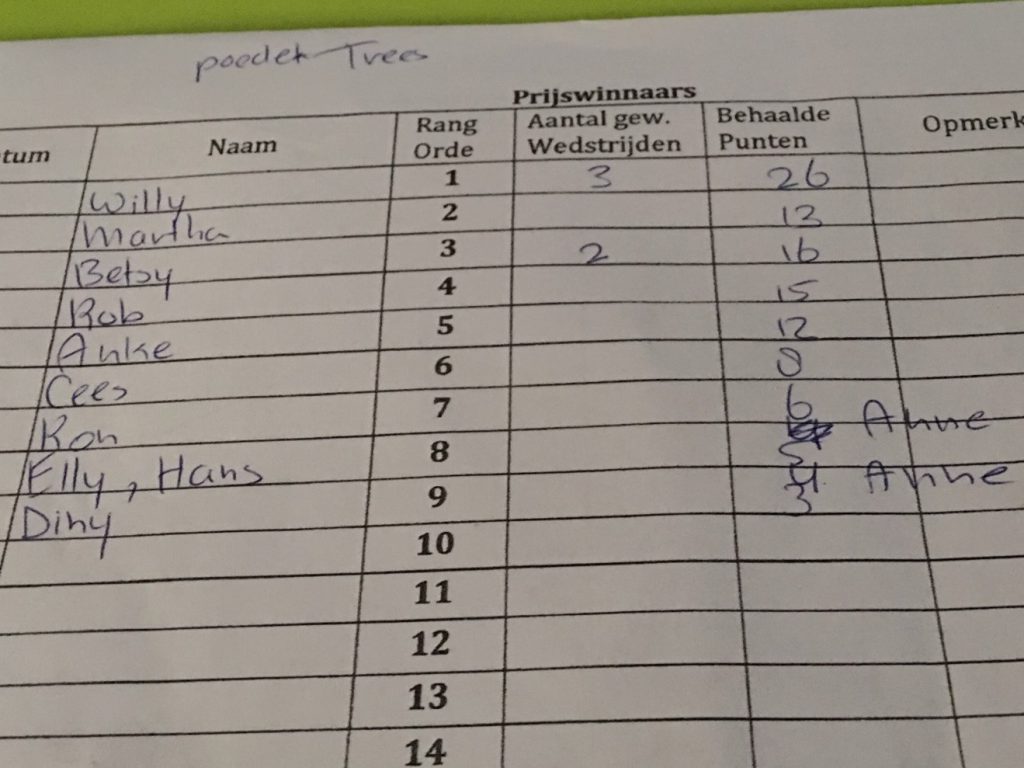 poedel Trees
Prijswinnaars
tum Naam Rang Orde Aantal gew. Wedstrijden Behaalde Punten Opmerk
Willy 1 3 26
Martha 2 13
Betsy 3 2 16
Rob 4 15
Anke 5 12
Cees 6 8
Ron 7 6 Anne
Elly, Hans 8 5
4 Anne
Diny 9 3
10
11
12
13
14